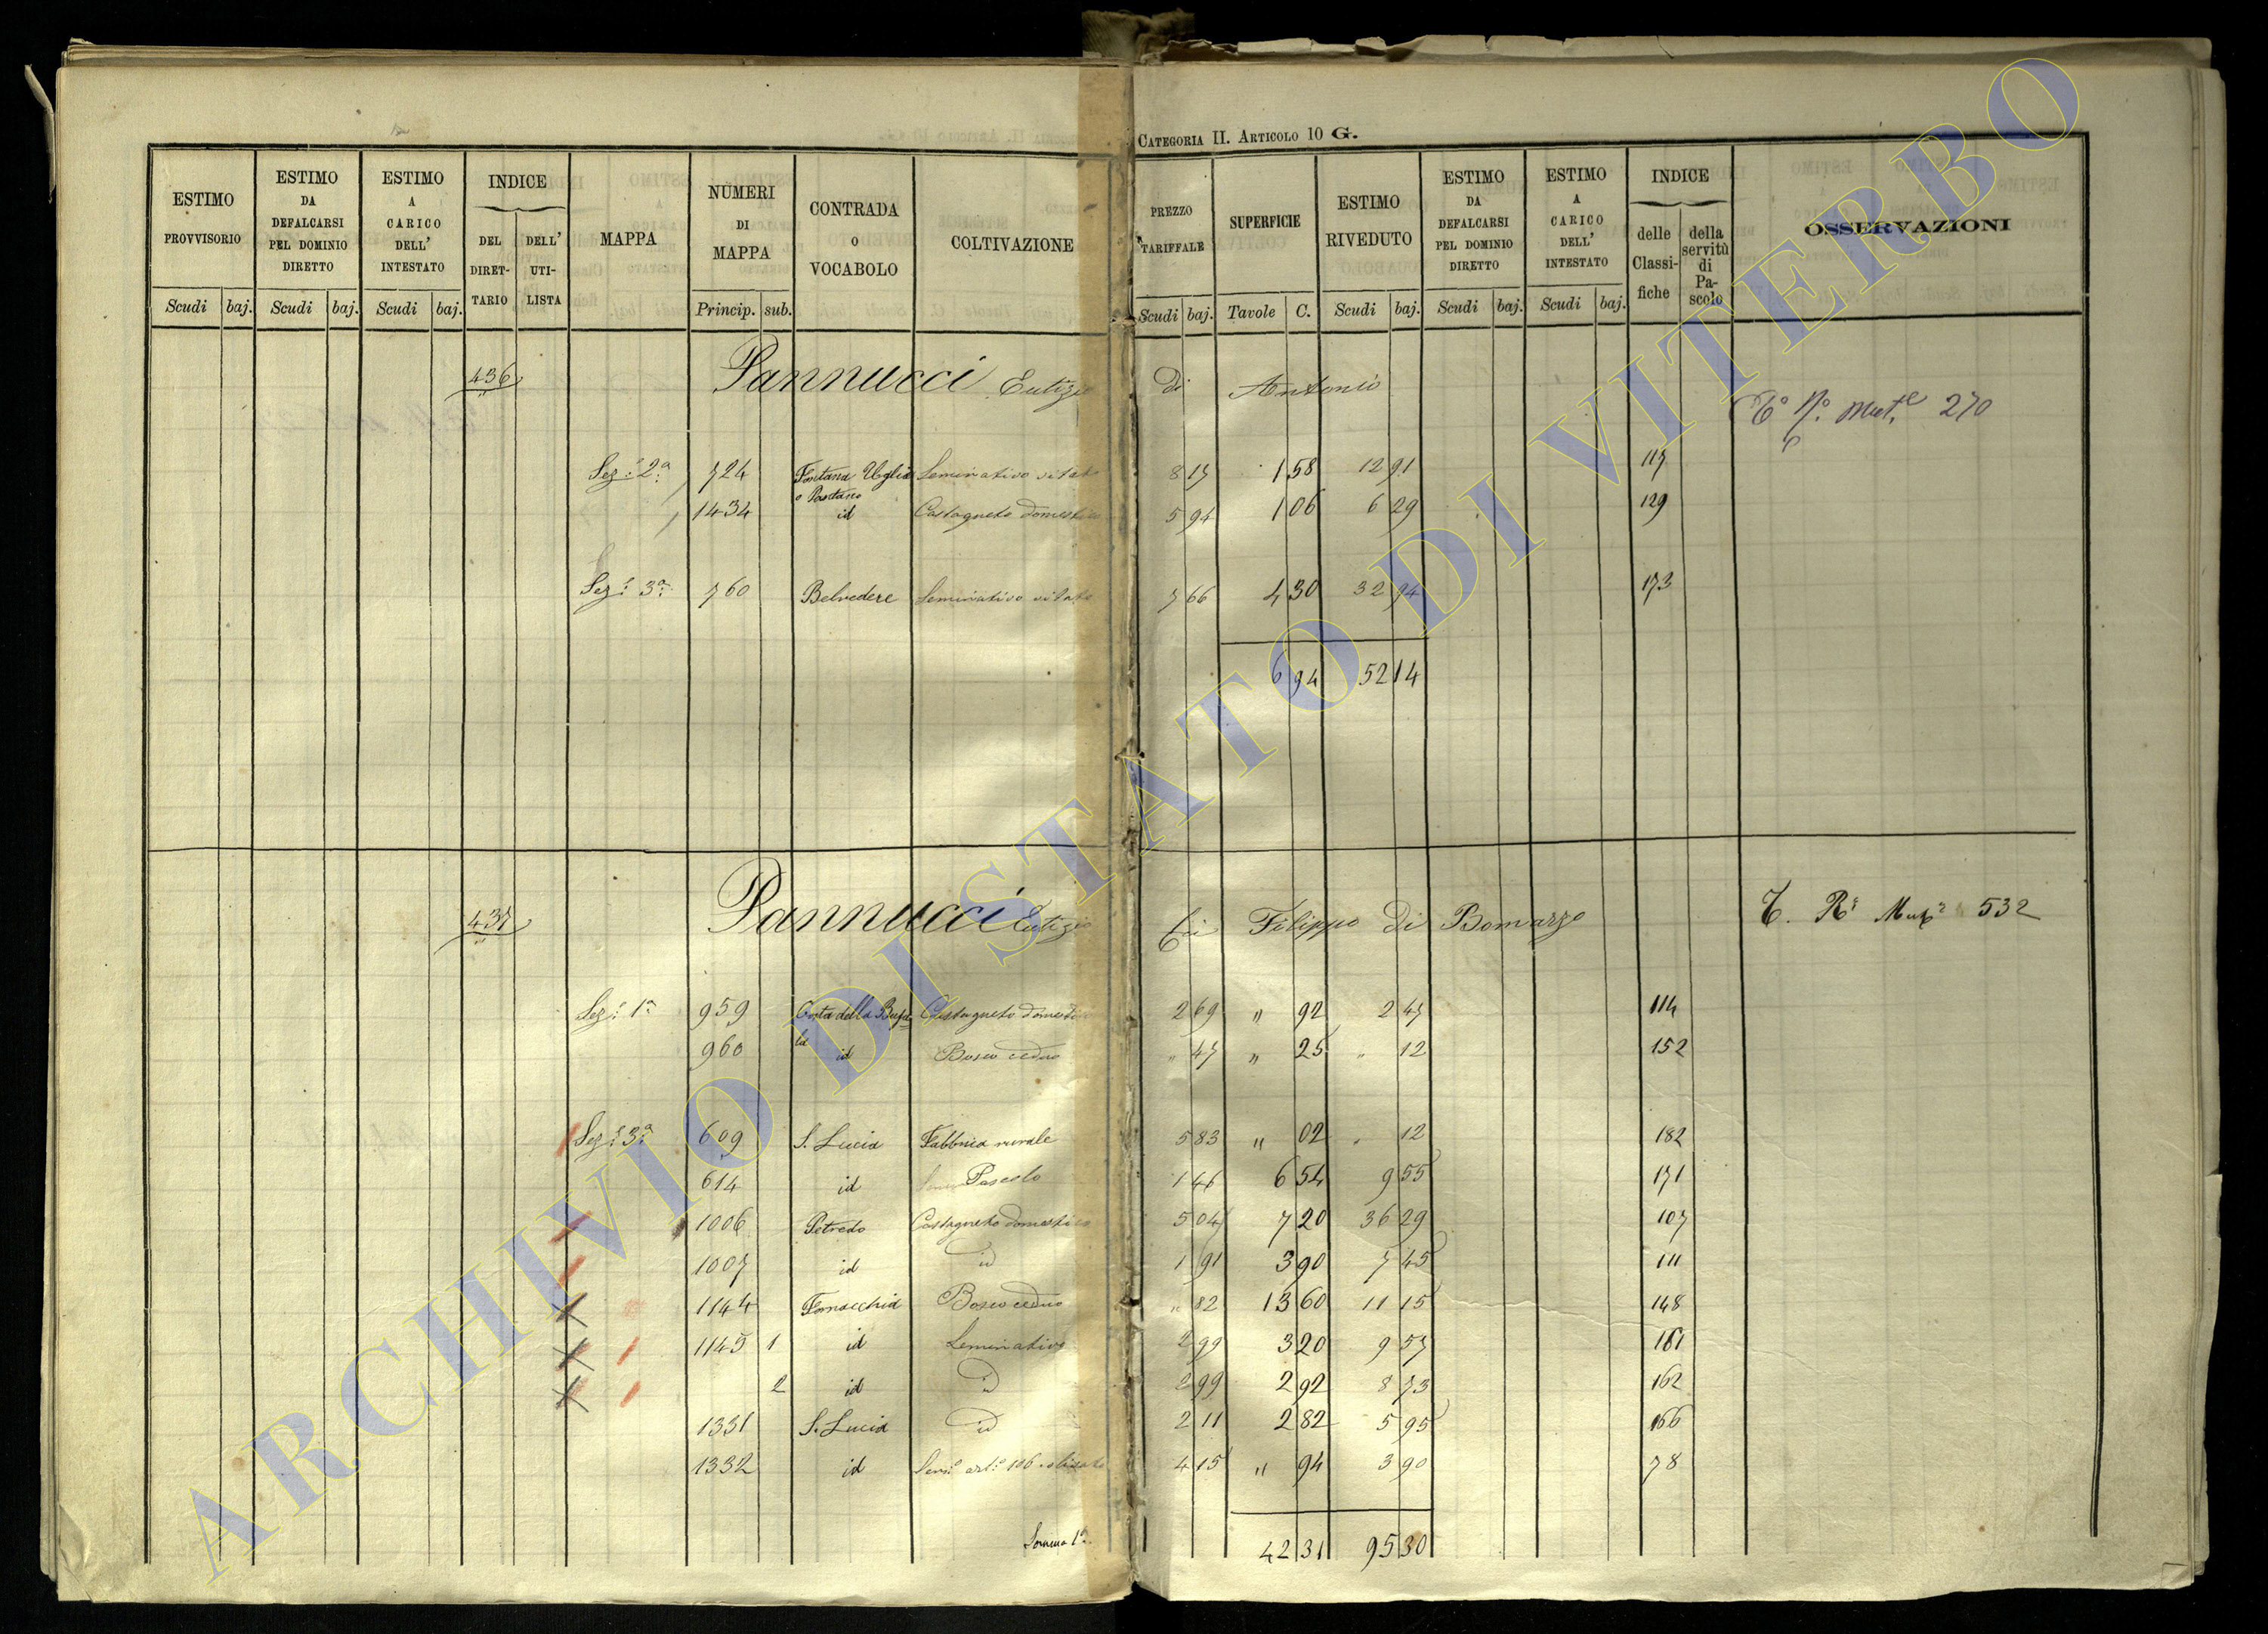 CATEGORIA II. ARTICOLO 10 G.
ESTIMO PROVVISORIO | ESTIMO DA DEFALCARSI PEL DOMINIO DIRETTO | ESTIMO A CARICO DELL' INTESTATO | INDICE | MAPPA | NUMERI DI MAPPA | CONTRADA O VOCABOLO | COLTIVAZIONE | PREZZO TARIFFALE | SUPERFICIE | ESTIMO RIVEDUTO | ESTIMO DA DEFALCARSI PEL DOMINIO DIRETTO | ESTIMO A CARICO DELL' INTESTATO | INDICE | OSSERVAZIONI
DEL DIRETTARIO | DELL' UTILISTA | delle Classifiche | della servitù di Pascolo
Scudi | baj. | Scudi | baj. | Scudi | baj. | Princip. | sub. | Scudi | baj. | Tavole | C. | Scudi | baj. | Scudi | baj. | Scudi | baj.
436 Pannucci Eutizio di Antonio
270
Sez: 2a 724 Fontana Seminativo vitato 8 17 1 58 12 91 117
o Pantano
1434 id Castagneto domestico 5 94 1 06 6 29 129
Sez: 3a 760 Belvedere Seminativo vitato 7 66 4 30 32 94 173
6 94 52 14
437 Pannucci Eutizio Filippo di Bomarzo
532
Sez: 1a 959 Costa della Castagneto domestico 2 69 " 92 2 47 114
960 id Bosco ceduo " 47 " 25 " 12 152
Sez: 3a 609 S. Lucia Fabbrica rurale 5 83 " 02 " 12 182
614 id Pascolo 1 46 6 54 9 55 171
1006 Petredo Castagneto domestico 5 04 7 20 36 29 107
1007 id id 1 91 3 90 7 45 111
1144 Fornacchia Bosco ceduo " 82 13 60 11 15 148
1145 1 id Seminativo 2 99 3 20 9 57 161
2 id id 2 99 2 92 8 73 162
1331 S. Lucia id 2 11 2 82 5 95 166
1332 id 4 15 " 94 3 90 78
Somma 1a 42 31 95 30
ARCHIVIO DI STATO DI VITERBO